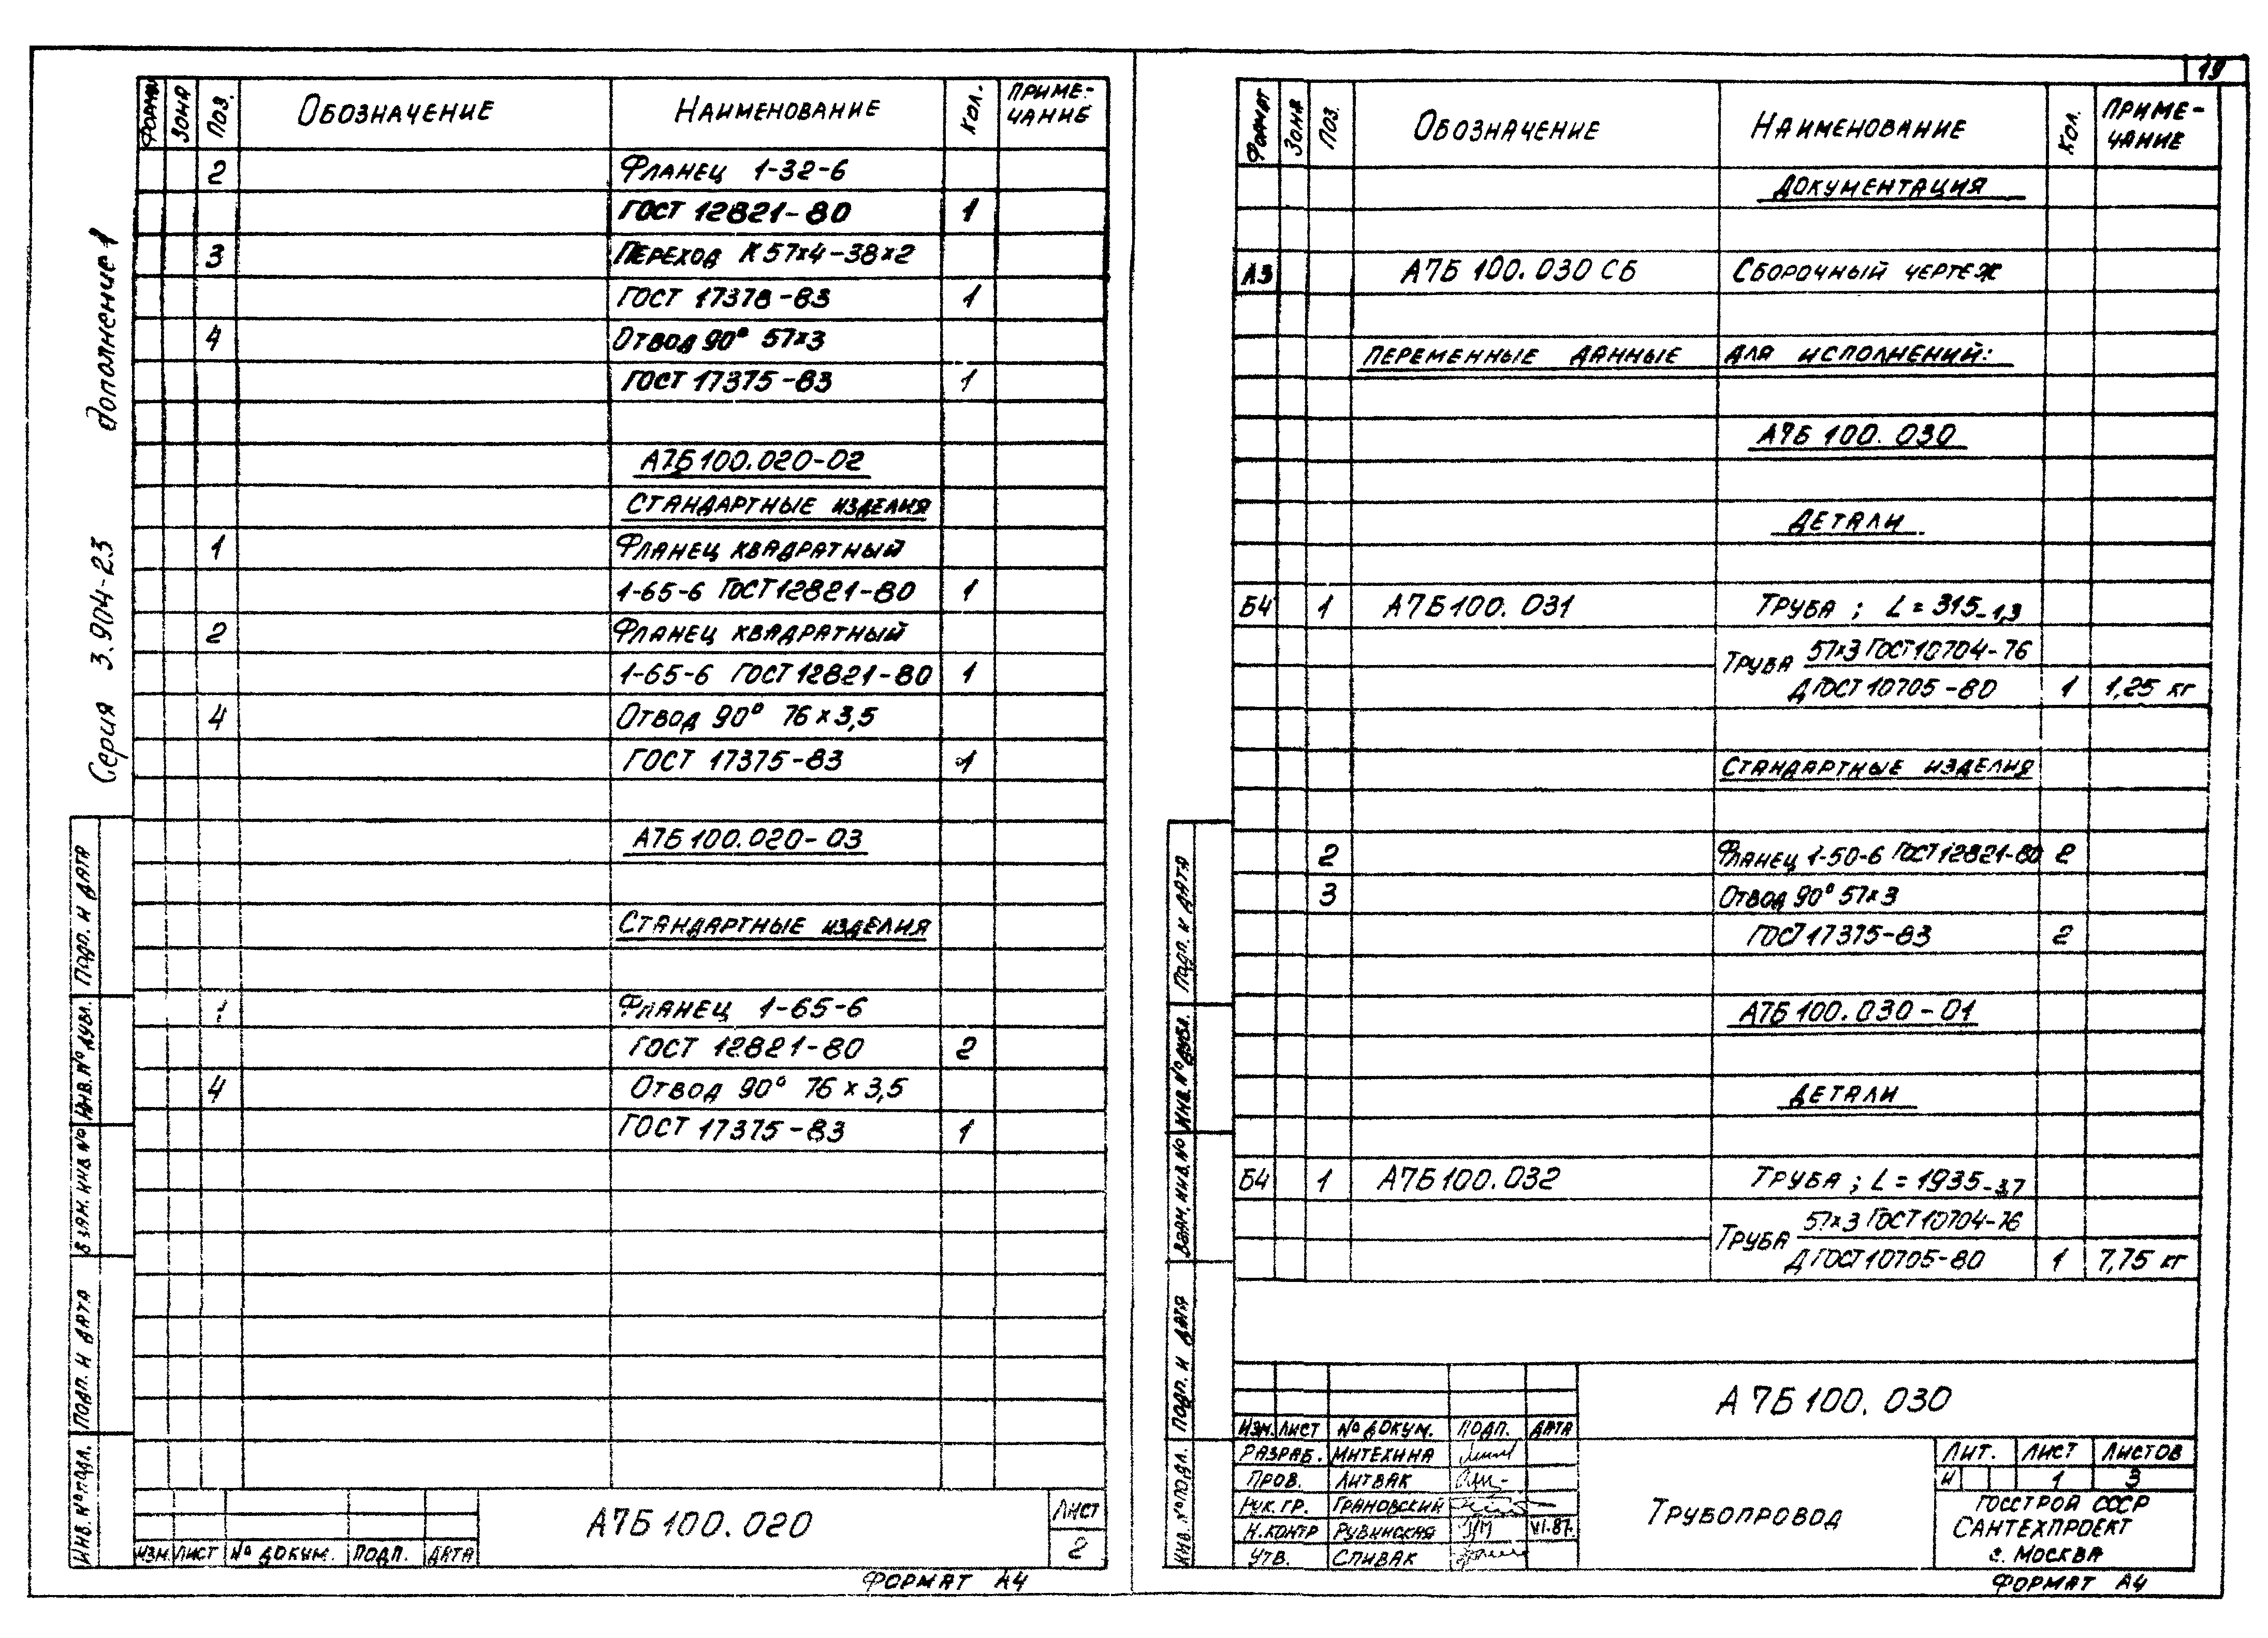 19
Серия 3.904-23 дополнение 1
Формат Зона Поз. Обозначение Наименование Кол. Примечание
2 Фланец 1-32-6
ГОСТ 12821-80 1
3 Переход К 57×4-38×2
ГОСТ 17378-83 1
4 Отвод 90° 57×3
ГОСТ 17375-83 1
А7Б 100.020-02
Стандартные изделия
1 Фланец квадратный
1-65-6 ГОСТ 12821-80 1
2 Фланец квадратный
1-65-6 ГОСТ 12821-80 1
4 Отвод 90° 76×3,5
ГОСТ 17375-83 1
А7Б 100.020-03
Стандартные изделия
1 Фланец 1-65-6
ГОСТ 12821-80 2
4 Отвод 90° 76×3,5
ГОСТ 17375-83 1
Подп. и дата
Инв. № дубл.
Взам. инв. №
Подп. и дата
Инв. № подл.
Изм. Лист № докум. Подп. Дата
А7Б 100.020
Лист
2
Формат А4
Формат Зона Поз. Обозначение Наименование Кол. Приме-
чание
Документация
А3 А7Б 100.030 СБ Сборочный чертеж
Переменные данные для исполнений:
А7Б 100.030
Детали
Б4 1 А7Б 100.031 Труба; L = 315-1,3
Труба 57×3 ГОСТ 10704-76
Д ГОСТ 10705-80 1 1,25 кг
Стандартные изделия
2 Фланец 1-50-6 ГОСТ 12821-80 2
3 Отвод 90° 57×3
ГОСТ 17375-83 2
А7Б 100.030-01
Детали
Б4 1 А7Б 100.032 Труба; L = 1935-3,7
Труба 57×3 ГОСТ 10704-76
Д ГОСТ 10705-80 1 7,75 кг
Подп. и дата
Инв. № дубл.
Взам. инв. №
Подп. и дата
Инв. № подл.
А7Б 100.030
Изм. Лист № докум. Подп. Дата
Разраб. Митехина
Пров. Литвак
Рук. гр. Грановский
Н. контр Рувинская VI.87.
Утв. Спивак
Трубопровод
Лит. Лист Листов
И 1 3
Госстрой СССР
Сантехпроект
г. Москва
Формат А4